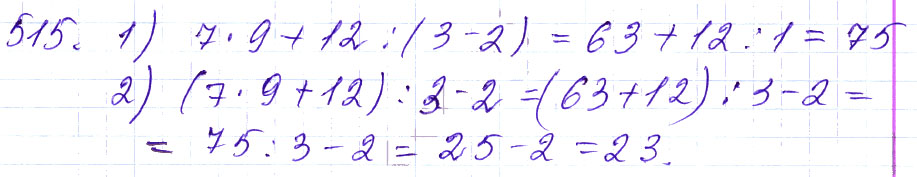 515. 1) 7·9+12:(3-2) = 63+12:1 = 75
2) (7·9+12):3-2 = (63+12):3-2 =
= 75:3-2 = 25-2 = 23.